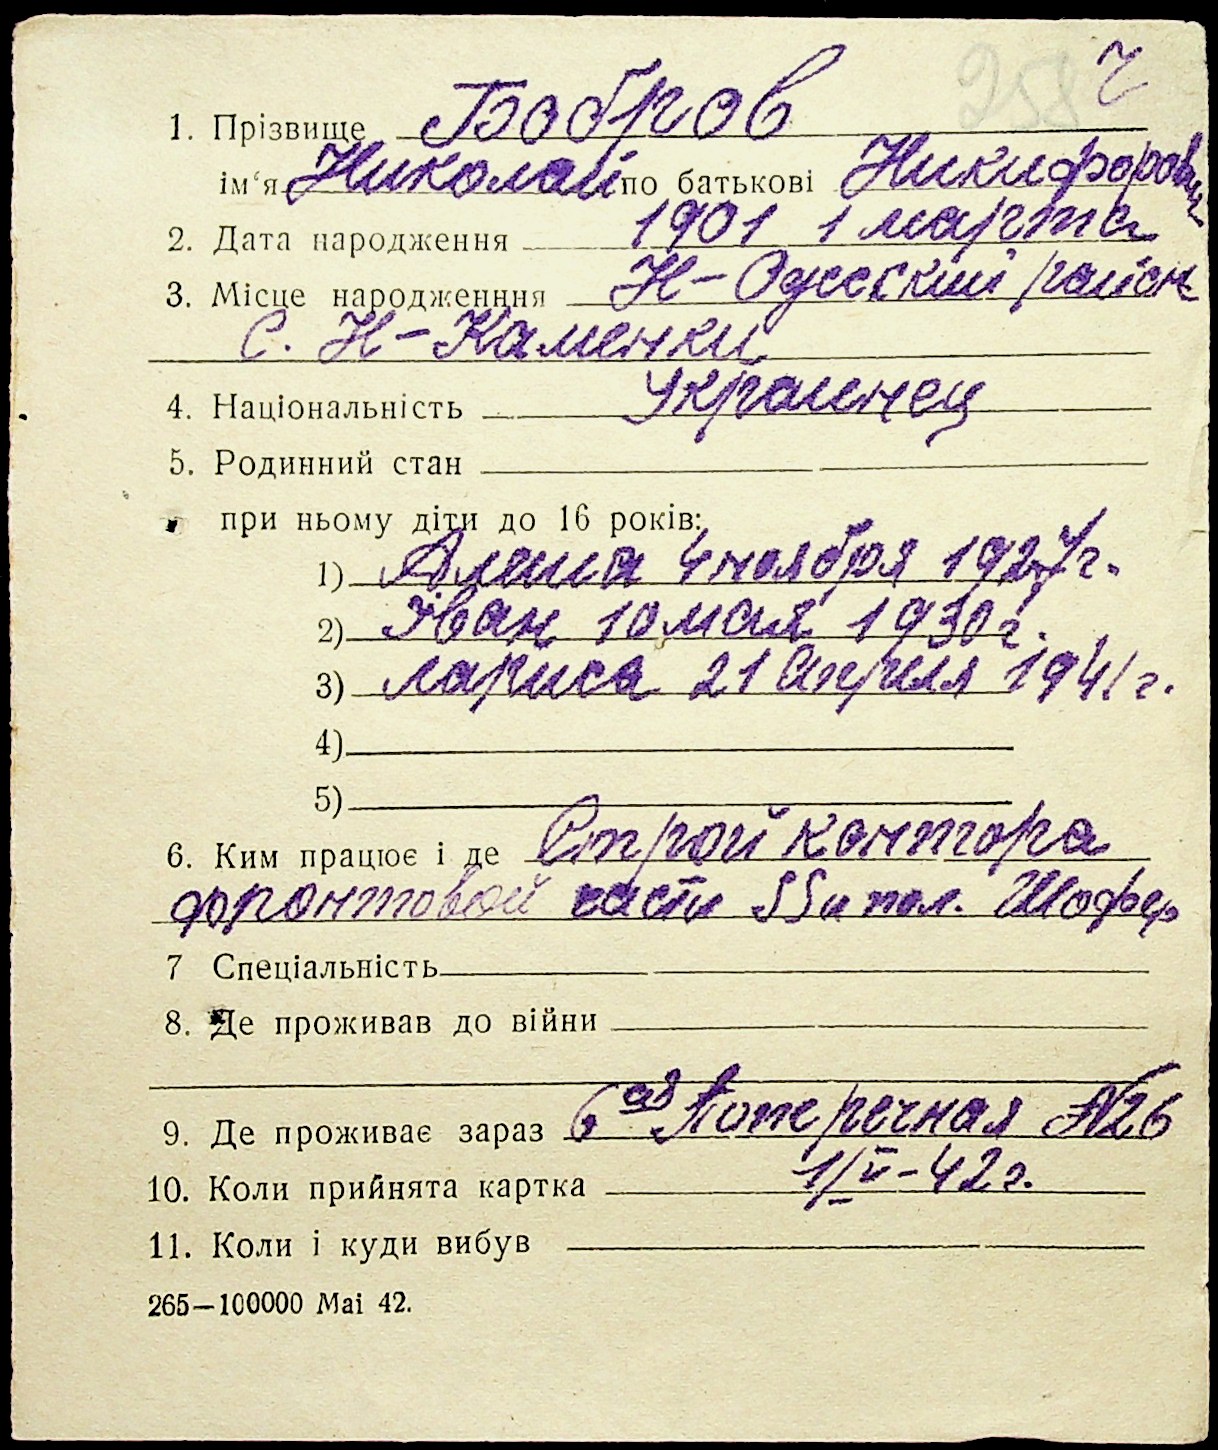 258 ч
1. Прізвище Бобров
ім'я Николай по батькові Никифорович
2. Дата народження 1901 1 марта
3. Місце народженння Н-Одесский район
С. Н-Каменки
4. Національність Украинец
5. Родинний стан
при ньому діти до 16 років:
1) 4 ноября 1927 г.
2) Іван 10 мая 1930 г.
3) Лариса 21 апреля 1941 г.
4)
5)
6. Ким працює і де Строй контора
фронтовой части Шофер
7 Спеціальність
8. Де проживав до війни
9. Де проживає зараз 6ая Поперечная №26
10. Коли прийнята картка 1/VI-42 г.
11. Коли і куди вибув
265—100000 Mai 42.